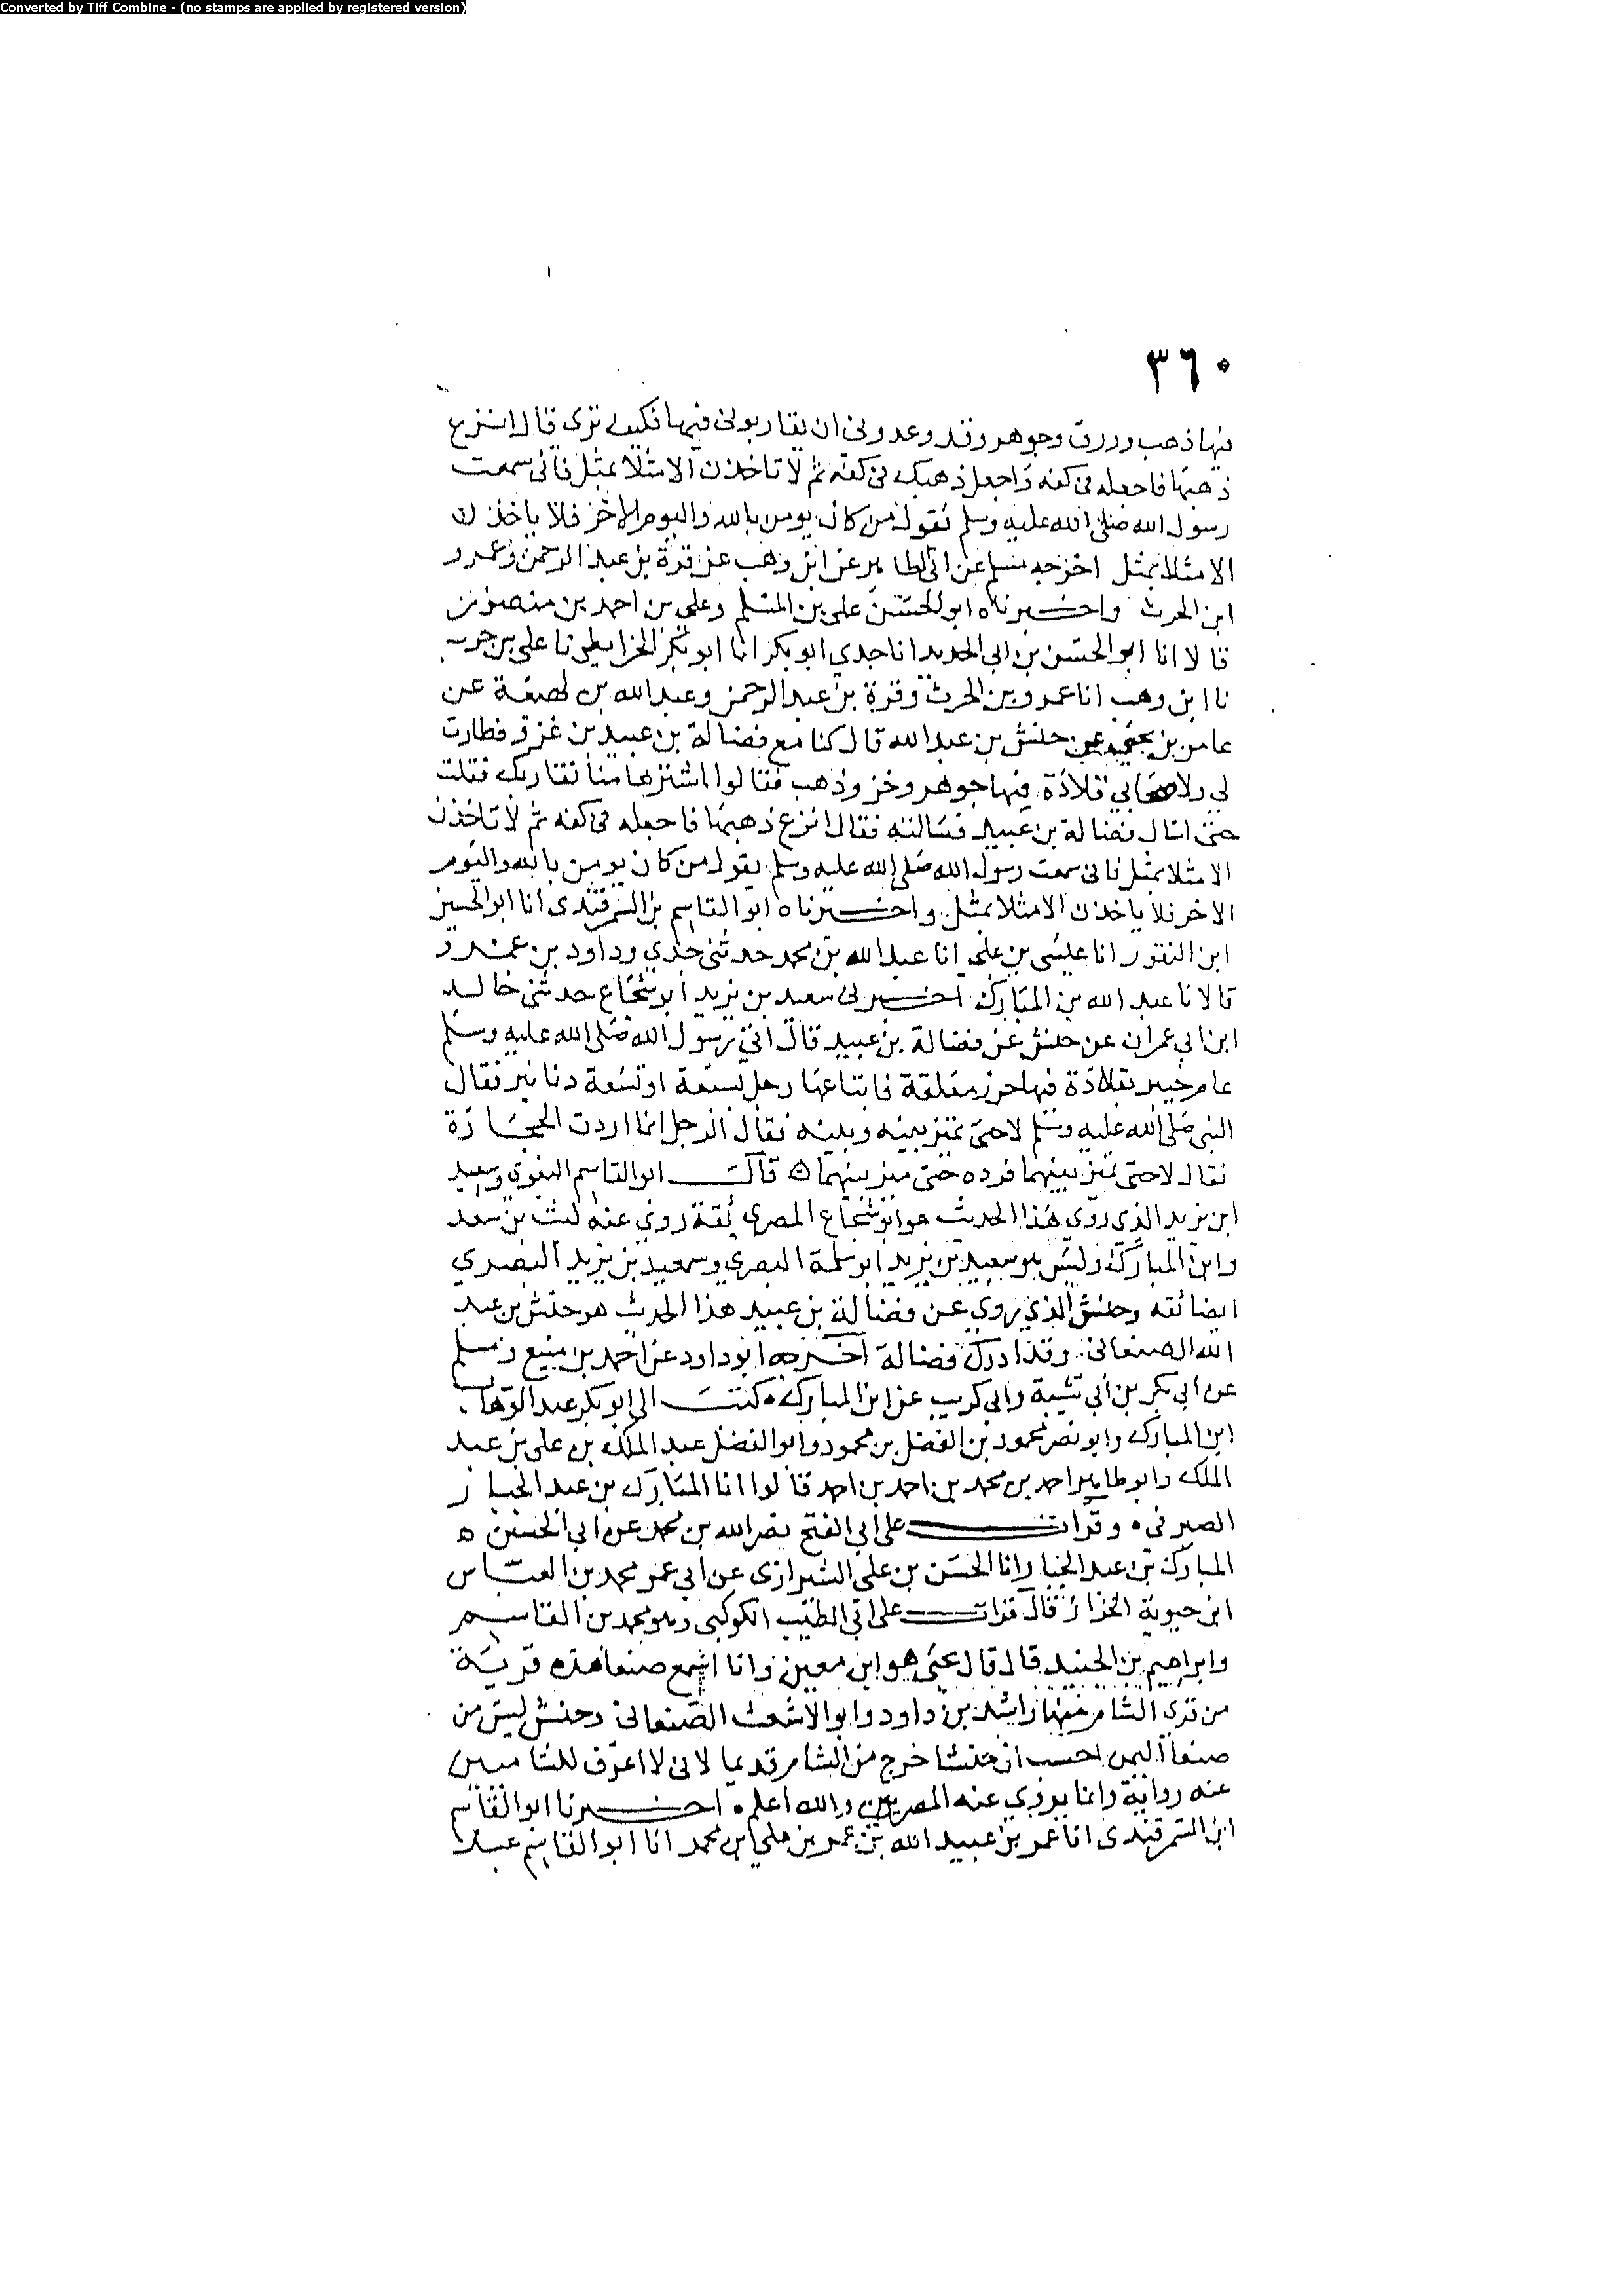 Converted by Tiff Combine - (no stamps are applied by registered version)
٣٦٠
فيها ذهب وورق وجوهر وقد وعدوني ان يقاربوني فيها فكيف ترى قال انزع
ذهبها فاجعله في كفه واجعل ذهبك في كفه ثم لا تاخذن الا مثلا بمثل فاني سمعت
رسول الله صلى الله عليه وسلم يقول من كان يومن بالله واليوم الاخر فلا ياخذن
الا مثلا بمثل اخرجه مسلم عن ابي الطاهر عن ابن وهب عن قرة بن عبد الرحمن وعمرو
ابن الحرث واخبرناه ابو الحسن علي بن المسلم وعلي بن احمد بن منصور
قالا انا ابو الحسن بن ابي الحديد انا جدي ابو بكر انا ابو بكر الخرايطي نا علي بن حرب
نا ابن وهب انا عمرو بن الحرث وقرة بن عبد الرحمن وعبد الله بن لهيعة عن
عامر بن يحيى عن حنش بن عبد الله قال كنا مع فضالة بن عبيد بن غزو فطارت
لي ولاصحابي قلادة فيها جوهر وخرز وذهب فقالوا اشترها منا نقاربك فقلت
حتى اسال فضالة بن عبيد فسالته فقال انزع ذهبها فاجعله في كفه ثم لا تاخذن
الا مثلا بمثل فاني سمعت رسول الله صلى الله عليه وسلم يقول من كان يومن بالله واليوم
الاخر فلا ياخذن الا مثلا بمثل واخبرناه ابو القاسم بن السمرقندي انا ابو الحسين
ابن النقور انا عيسى بن علي انا عبد الله بن محمد حدثني جدي وداود بن عمرو
قالا نا عبد الله بن المبارك اخبرني سعيد بن يزيد ابو شجاع حدثني خالد
ابن ابي عمران عن حنش عن فضالة بن عبيد قال اتي رسول الله صلى الله عليه وسلم
عام خيبر بقلادة فيها خرز معلقة فابتاعها رجل بسبعة او تسعة دنانير فقال
النبي صلى الله عليه وسلم لا حتى تميز بينه وبينه فقال الرجل انما اردت الحجارة
فقال لا حتى تميز بينهما فرده حتى ميز بينهما ۞ قال ابو القاسم البغوي وسعيد
ابن يزيد الذي روى هذا الحديث هو ابو شجاع المصري ثقة روى عنه ليث بن سعد
وابن المبارك وليس هو سعيد بن يزيد ابو سلمة البصري وسعيد بن يزيد البصري
ايضا ثقه وحنش الذي يروي عن فضالة بن عبيد هذا الحديث هو حنش بن عبد
الله الصنعاني وقد ادرك فضالة اخرجه ابو داود عن احمد بن منيع ومسلم
عن ابي بكر بن ابي شيبة وابي كريب عن ابن المبارك ۰ كتب الي ابو بكر عبد الوهاب
ابن المبارك وابو نصر محمود بن الفضل بن محمود وابو الفضل عبد الملك بن علي بن عبد
الملك وابو طاهر احمد بن محمد بن احمد بن احمد قالوا انا المبارك بن عبد الجبار
الصيرفي ۰ وقرات على ابي الفتح نصر الله بن محمد عن ابي الحسين ه
المبارك بن عبد الجبار انا الحسن بن علي الشيرازي عن ابي عمر محمد بن العباس
ابن حيوية الخزاز قال قرات على ابي الطيب الكوكبي وهو محمد بن القاسم
وابراهيم بن الجنيد قال قال يحيى هو ابن معين وانا اسمع صنعا هذه قرية
من قرى الشام منها راشد بن داود وابو الاشعث الصنعاني وحنش ليس من
صنعا اليمن احسب ان حنشا خرج من الشام قديما لاني لا اعرف للشاميين
عنه رواية وانما يروي عنه المصريين والله اعلم ۰ اخبرنا ابو القاسم
ابن السمرقندي انا عمر بن عبيد الله بن عمر بن علي بن محمد انا ابو القاسم عبد